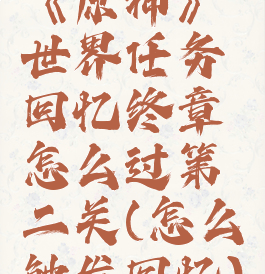 《原神》
世界任务
回忆终章
怎么过第
二关(怎么
触发回忆)